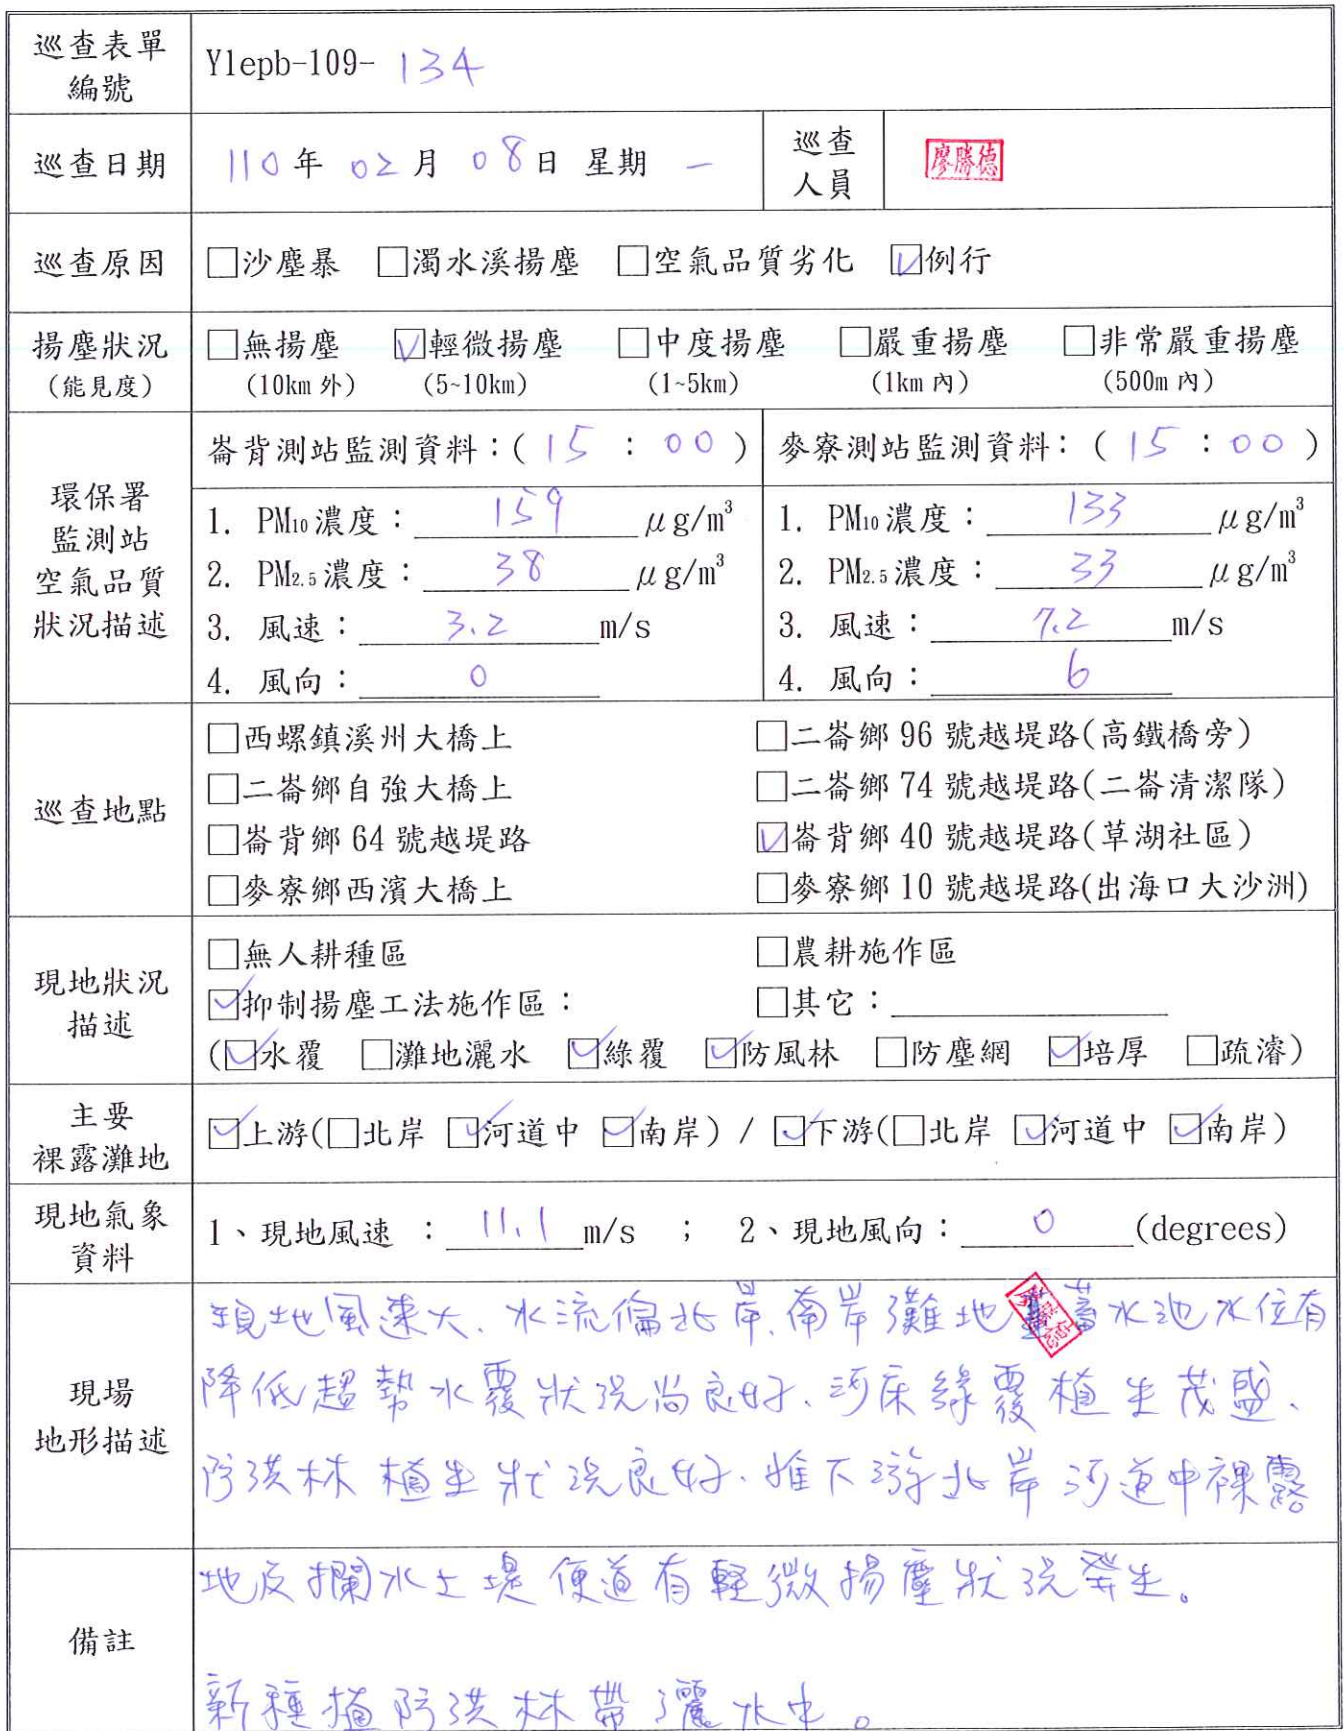 巡查表單
編號
Ylepb-109-134
巡查日期
110年 02月 08日 星期 一
巡查
人員
廖勝德
巡查原因
□沙塵暴 □濁水溪揚塵 □空氣品質劣化 ☑例行
揚塵狀況
(能見度)
□無揚塵 ☑輕微揚塵 □中度揚塵 □嚴重揚塵 □非常嚴重揚塵
(10km 外) (5~10km) (1~5km) (1km 內) (500m 內)
環保署
監測站
空氣品質
狀況描述
崙背測站監測資料：(15 : 00)
1. PM10濃度：159 μg/m³
2. PM2.5濃度：38 μg/m³
3. 風速：3.2 m/s
4. 風向：0
麥寮測站監測資料：(15 : 00)
1. PM10濃度：133 μg/m³
2. PM2.5濃度：33 μg/m³
3. 風速：7.2 m/s
4. 風向：6
巡查地點
□西螺鎮溪州大橋上 □二崙鄉 96 號越堤路(高鐵橋旁)
□二崙鄉自強大橋上 □二崙鄉 74 號越堤路(二崙清潔隊)
□崙背鄉 64 號越堤路 ☑崙背鄉 40 號越堤路(草湖社區)
□麥寮鄉西濱大橋上 □麥寮鄉 10 號越堤路(出海口大沙洲)
現地狀況
描述
□無人耕種區 □農耕施作區
☑抑制揚塵工法施作區： □其它：
(☑水覆 □灘地灑水 ☑綠覆 ☑防風林 □防塵網 ☑培厚 □疏濬)
主要
裸露灘地
☑上游(□北岸 ☑河道中 ☑南岸) / ☑下游(□北岸 ☑河道中 ☑南岸)
現地氣象
資料
1、現地風速 ：11.1 m/s ； 2、現地風向：0 (degrees)
現場
地形描述
現地風速大、水流偏北岸、南岸灘地蓄水池水位有
降低趨勢水覆狀況尚良好、河床綠覆植生茂盛、
防洪林植生狀況良好、惟下游北岸河道中裸露
備註
地及攔水土堤便道有輕微揚塵狀況發生。
新種植防洪林帶灑水中。